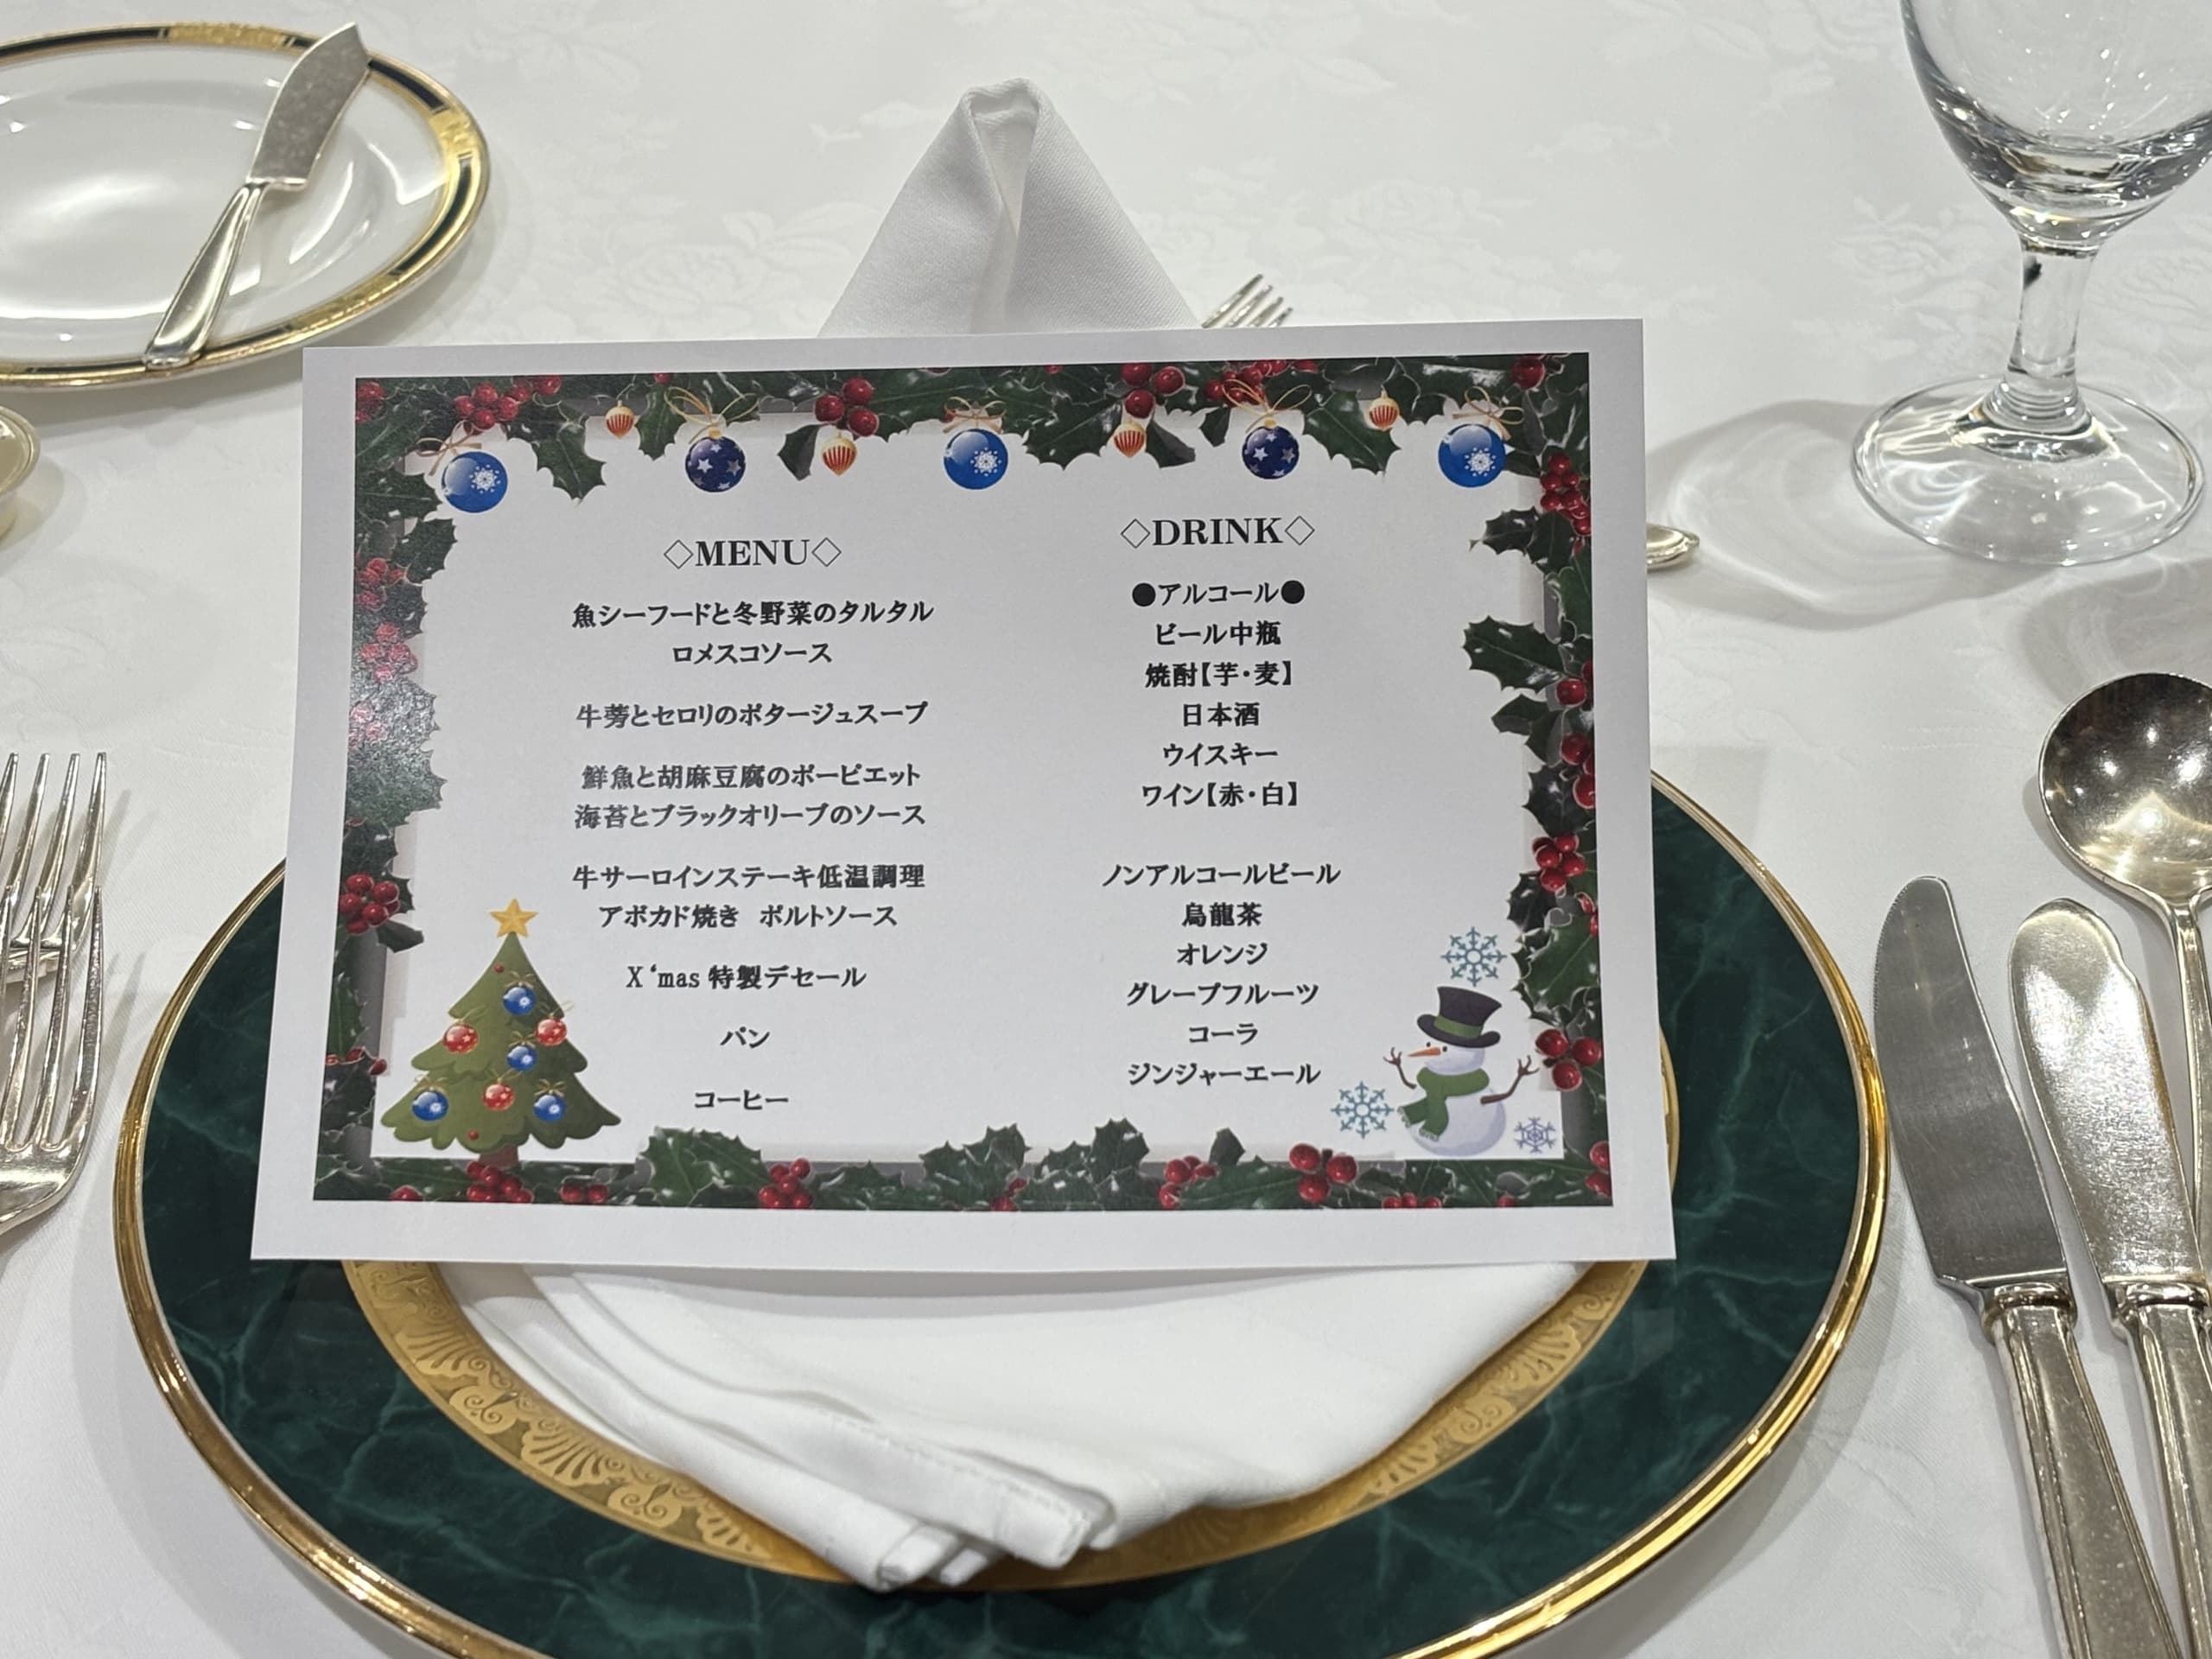 ◇MENU◇
魚シーフードと冬野菜のタルタル
ロメスコソース
牛蒡とセロリのポタージュスープ
鮮魚と胡麻豆腐のポーピエット
海苔とブラックオリーブのソース
牛サーロインステーキ低温調理
アボカド焼き　ポルトソース
X‘mas 特製デセール
パン
コーヒー
◇DRINK◇
●アルコール●
ビール中瓶
焼酎【芋・麦】
日本酒
ウイスキー
ワイン【赤・白】
ノンアルコールビール
烏龍茶
オレンジ
グレープフルーツ
コーラ
ジンジャーエール